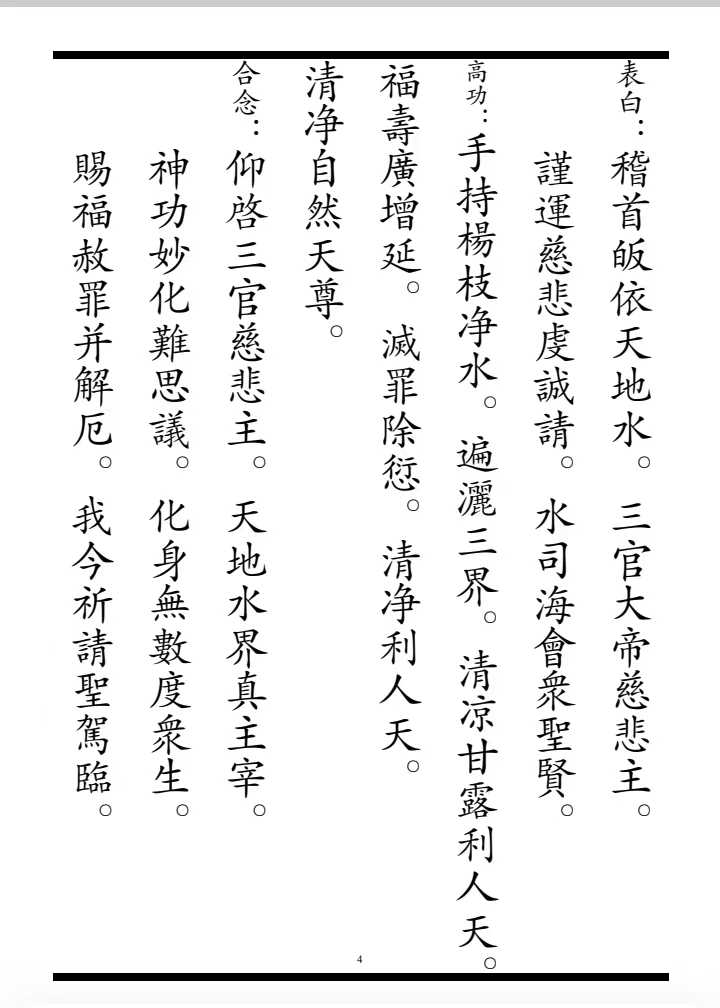 表白：稽首皈依天地水。三官大帝慈悲主。
謹運慈悲虔誠請。水司海會衆聖賢。
高功：手持楊枝净水。遍灑三界。清凉甘露利人天。
福壽廣增延。滅罪除愆。清净利人天。
清净自然天尊。
合念：仰啓三官慈悲主。天地水界真主宰。
神功妙化難思議。化身無數度衆生。
賜福赦罪并解厄。我今祈請聖駕臨。
4